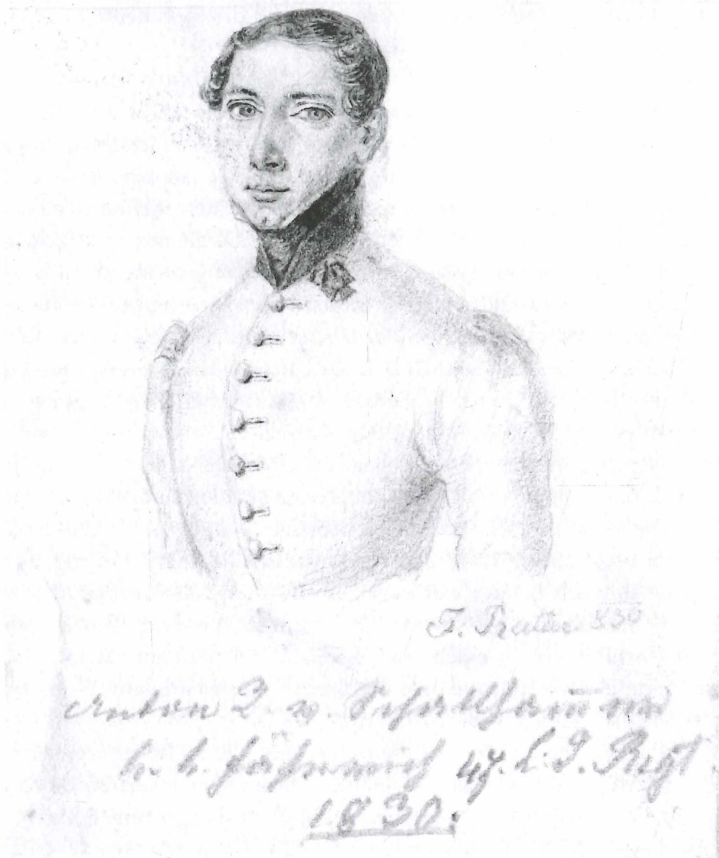 F. 830
Anton R. v Schallhammer
k. k. Fähnrich 47. L. I. Regt
1830.